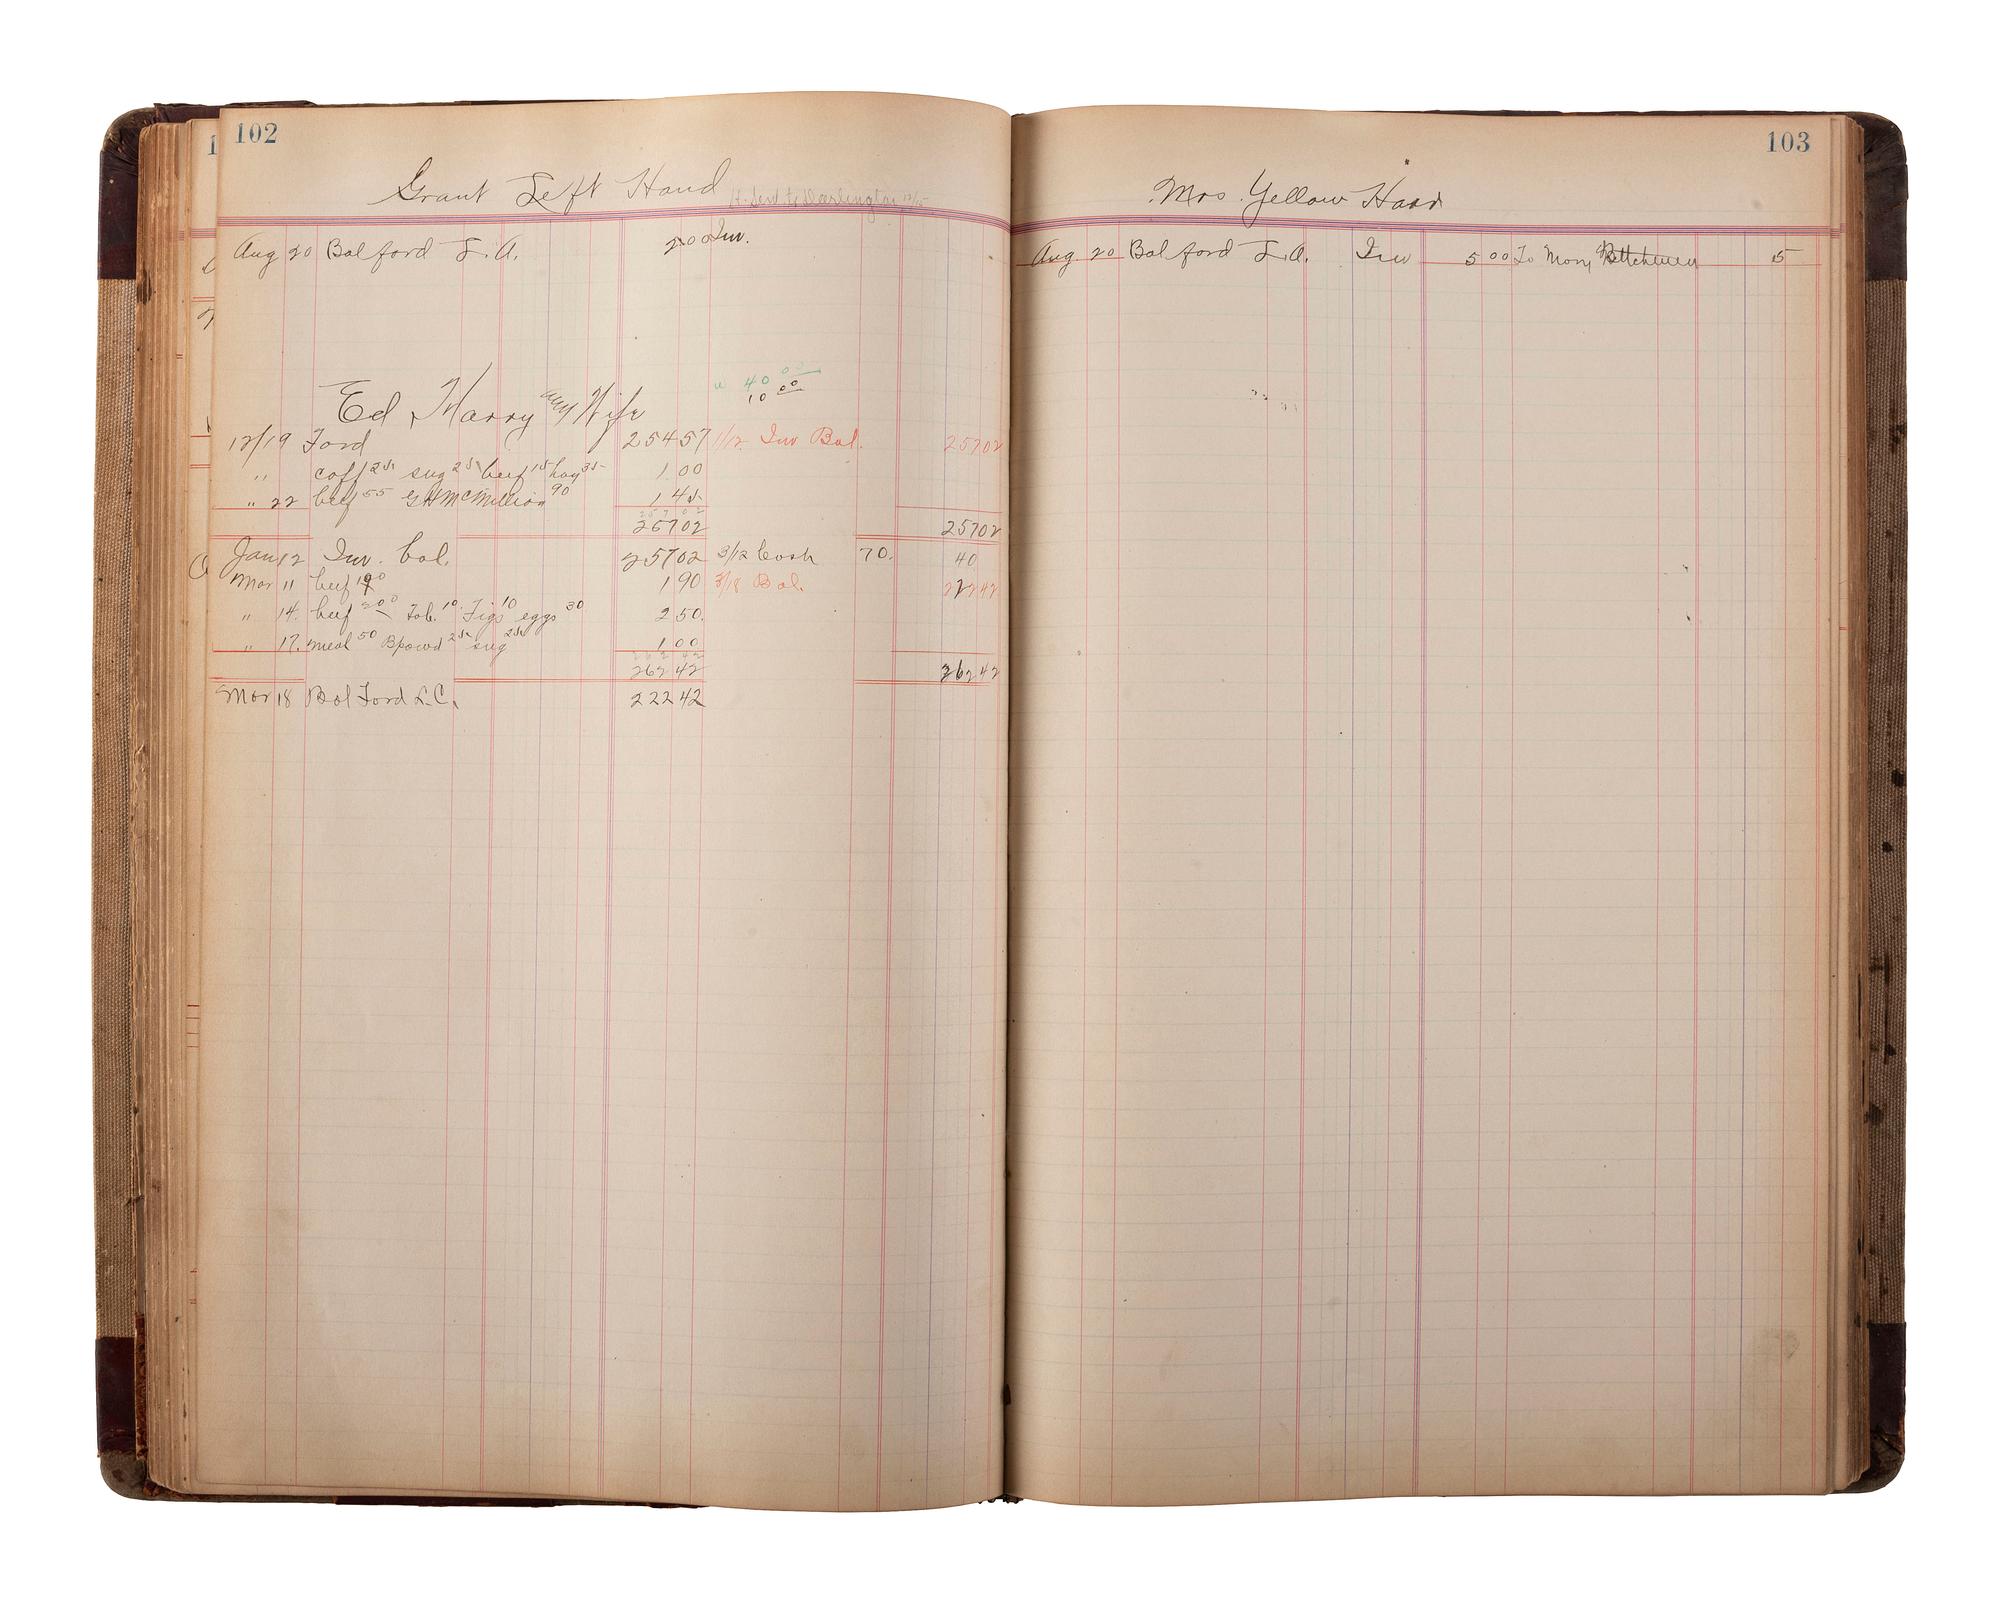 102
Grant Left Hand
Sent to Darlington
Aug 20 Bal ford L. A. 2.00 Inv.
40 00
10 00
Ed Harry and Wife
12/19 Ford 254 57 1/12 Inv Bal. 257 02
" coff 25 sug 25 beef 15 hay 35 1 00
" 22 beef 55 G H McMillion 90 1 45
257 02
257 02 257 02
Jan 12 Inv. bal. 257 02 3/12 Cash 70. 40
Mar 11 beef 190 1 90 3/18 Bal. 222 42
" 14. beef 200 Tob. 10 Figs 10 eggs 30 2 50.
" 17. meal 50 B powd 25 sug 25 1 00
262 42
262 42 262 42
Mar 18 Bal Ford L. C. 222 42
103
Mrs. Yellow Hair
Aug 20 Bal ford L. A. Inv 5 00 To Mary 5